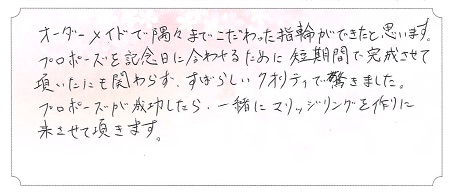 オーダーメイドで隅々までこだわった指輪ができたと思います。
プロポーズを記念日に合わせるために短期間で完成させて
頂いたにも関わらず、すばらしいクオリティで驚きました。
プロポーズが成功したら、一緒にマリッジリングを作りに
来させて頂きます。